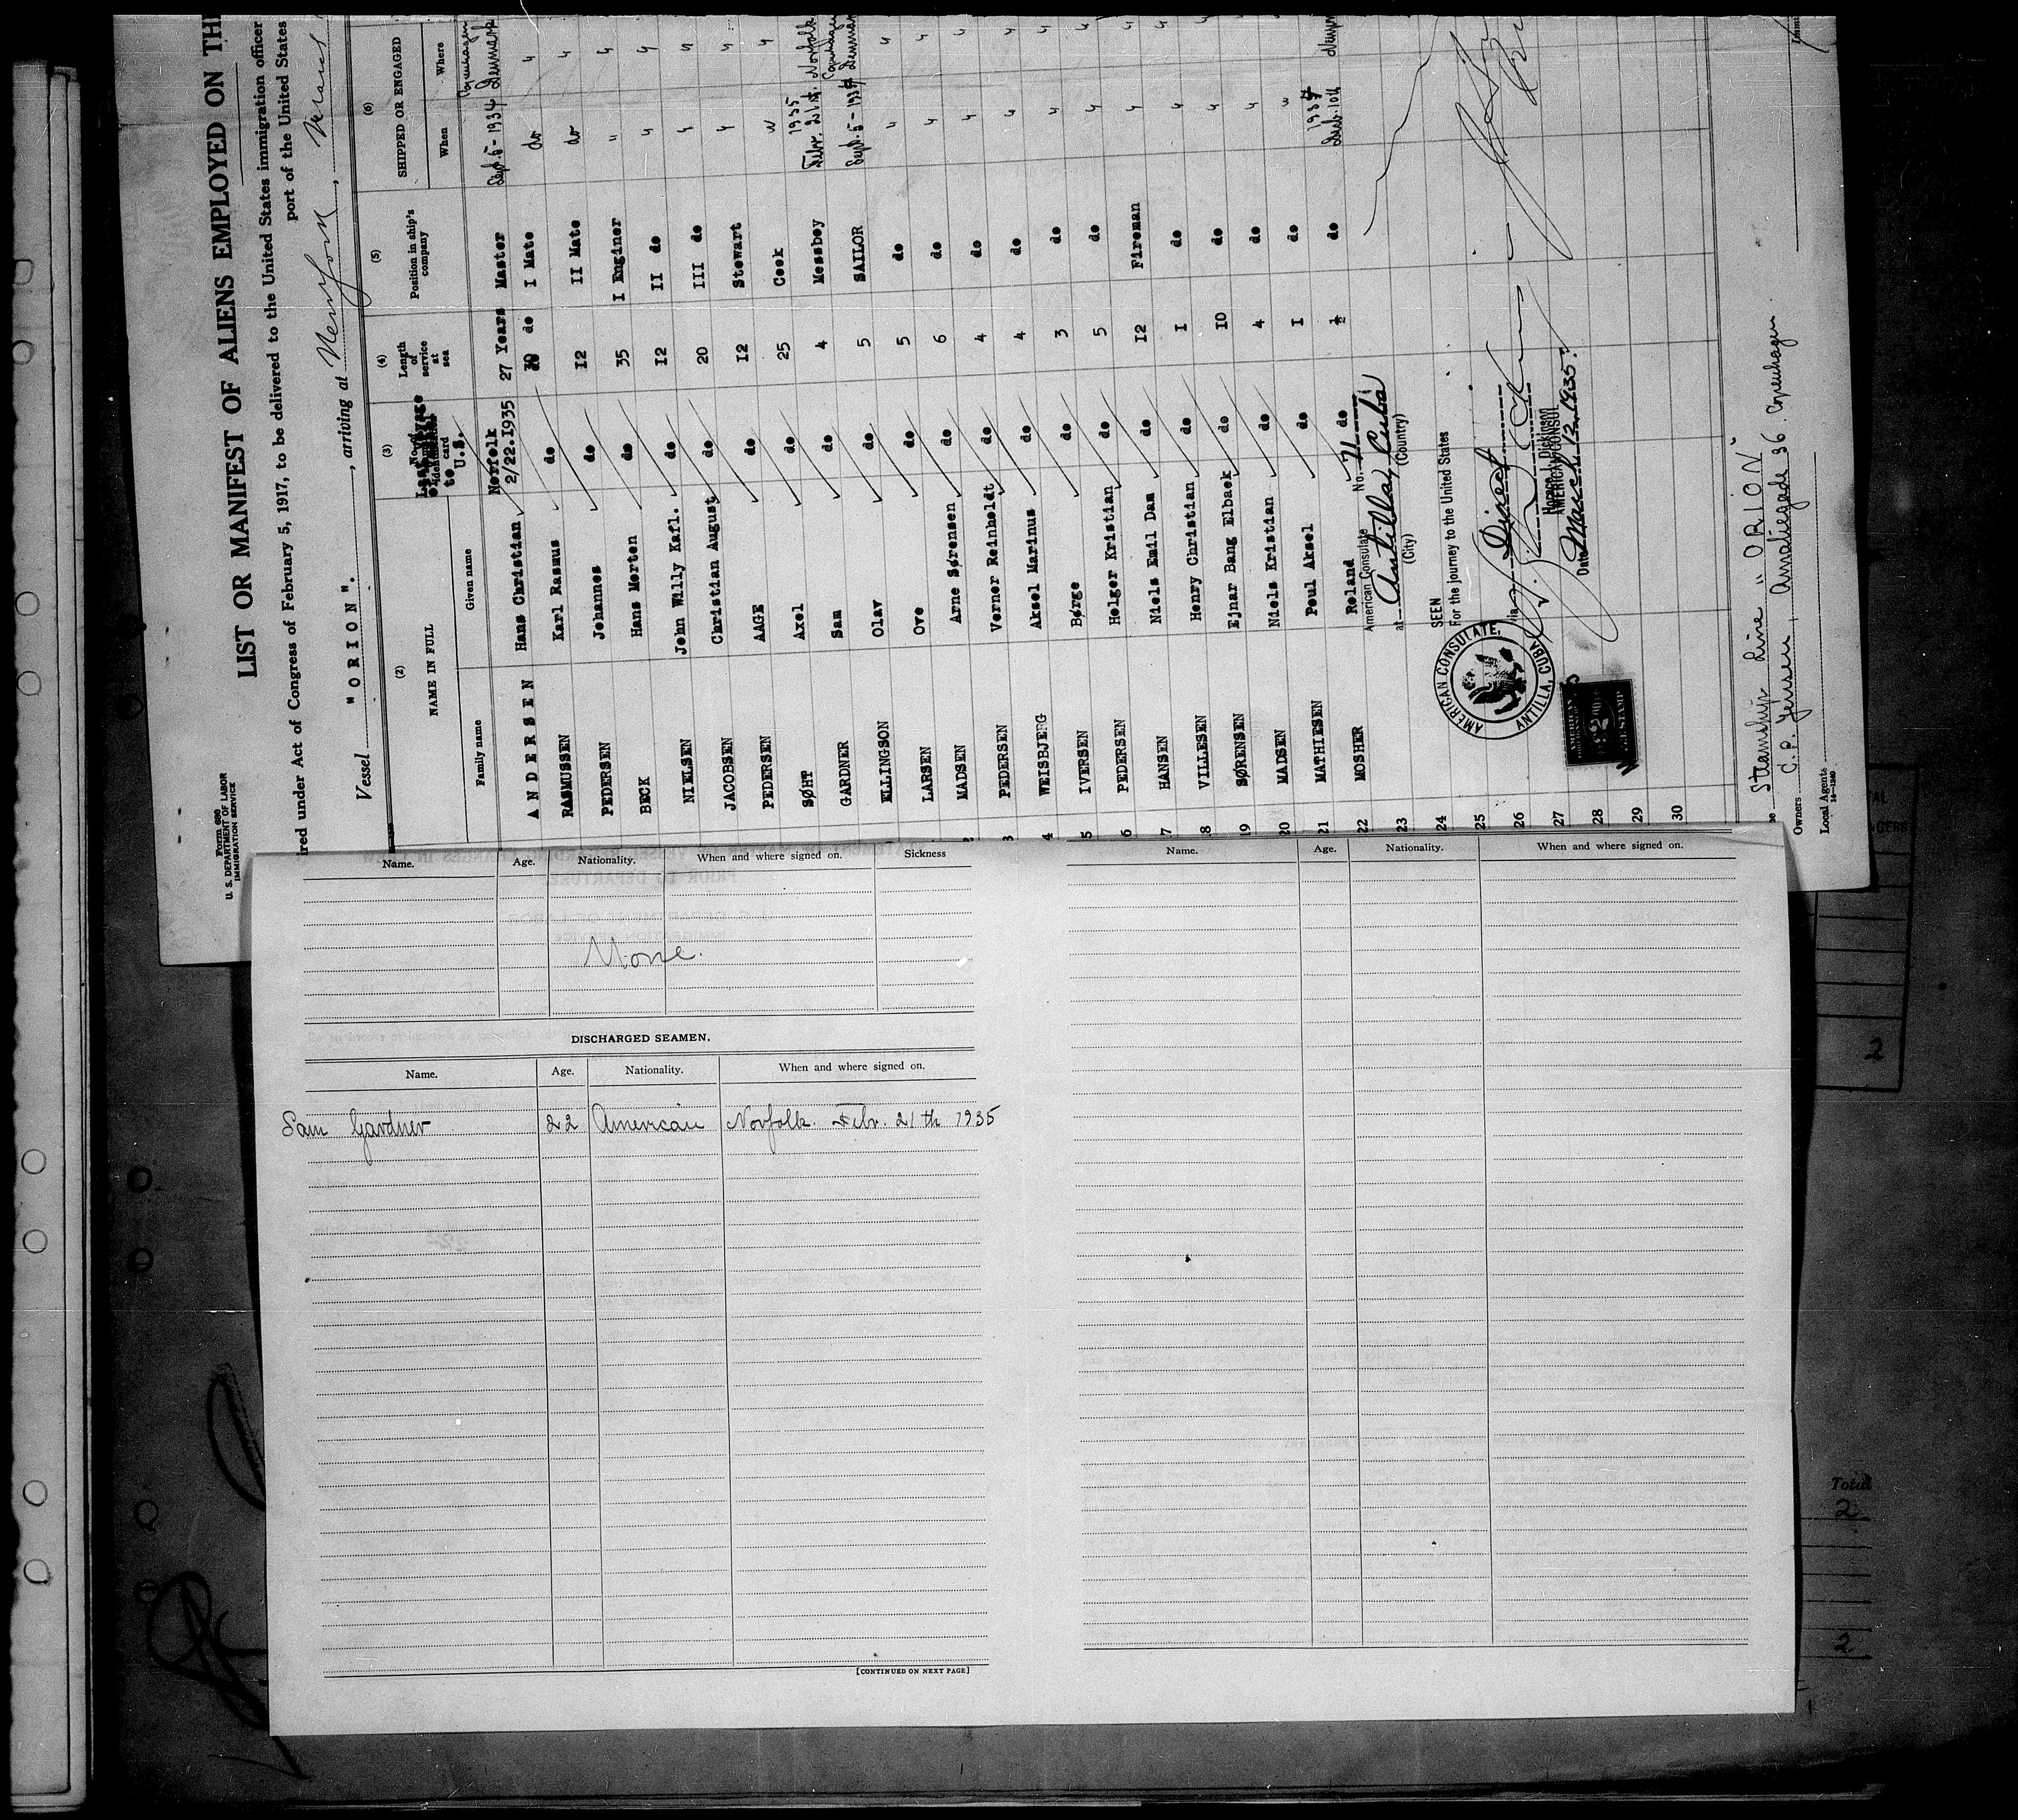 Form 680
U. S. DEPARTMENT OF LABOR
IMMIGRATION SERVICE
LIST OR MANIFEST OF ALIENS EMPLOYED ON TH
ired under Act of Congress of February 5, 1917, to be delivered to the United States immigration officer
port of the United States
Vessel "ORION". , arriving at New York ,
(2) (3) (4) (5) (6)
NAME IN FULL
Family name Given name
card to U.S.
Length of service at sea
Position in ship's company
SHIPPED OR ENGAGED
When Where
ANDERSEN Hans Christian Norfolk 2/22.1935 27 Years Master Sept. 5-1934 Copenhagen Denmark
RASMUSSEN Karl Rasmus do do I Mate do "
PEDERSEN Johannes do 12 II Mate do "
BECK Hans Morten do 35 I Enginer " "
NIELSEN John Willy Kafl. do 12 II do " "
JACOBSEN Christian August do 20 III do " "
PEDERSEN AAGE do 12 Stewart " "
SØHT Axel do 25 Cook " "
GARDNER Sam do 4 Messboy 1935 Febr. 21st. Norfolk
ELLINGSON Olav do 5 SAILOR Sept. 5-1934 Copenhagen Denmark
LARSEN Ove do 5 do " "
MADSEN Arne Sørensen do 6 do " "
PEDERSEN Verner Reinholdt do 4 do " "
4 WEISBJERG Aksel Marinus do 4 do " "
5 IVERSEN Børge do 3 do " "
6 PEDERSEN Holger Kristian do 5 do " "
7 HANSEN Niels Emil Dam do 12 Fireman " "
8 VILLESEN Henry Christian do 1 do " "
19 SØRENSEN Ejnar Bang Elbaek do 10 do " "
20 MADSEN Niels Kristian do 4 do " "
21 MATHIESEN Poul Aksel do 1 do " "
22 MOSHER Roland do ½ do
23
24
25
26
27
28
29
30
American Consulate No.
at Antilla, Cuba
(City) (Country)
SEEN
For the journey to the United States
via Direct
Horace J. Dickinson
AMERICAN CONSUL
Date March 12, 1935.
AMERICAN CONSULATE, ANTILLA, CUBA
Steamship Line "ORION"
Owners C. P. Jensen, Amaliegade 36. Copenhagen
Local Agents
Name. Age. Nationality. When and where signed on. Sickness
None.
DISCHARGED SEAMEN.
Name. Age. Nationality. When and where signed on.
Sam Gardner 22 American Norfolk. Febr. 21th 1935
[CONTINUED ON NEXT PAGE]
Name. Age. Nationality. When and where signed on.
2
Total
2
2